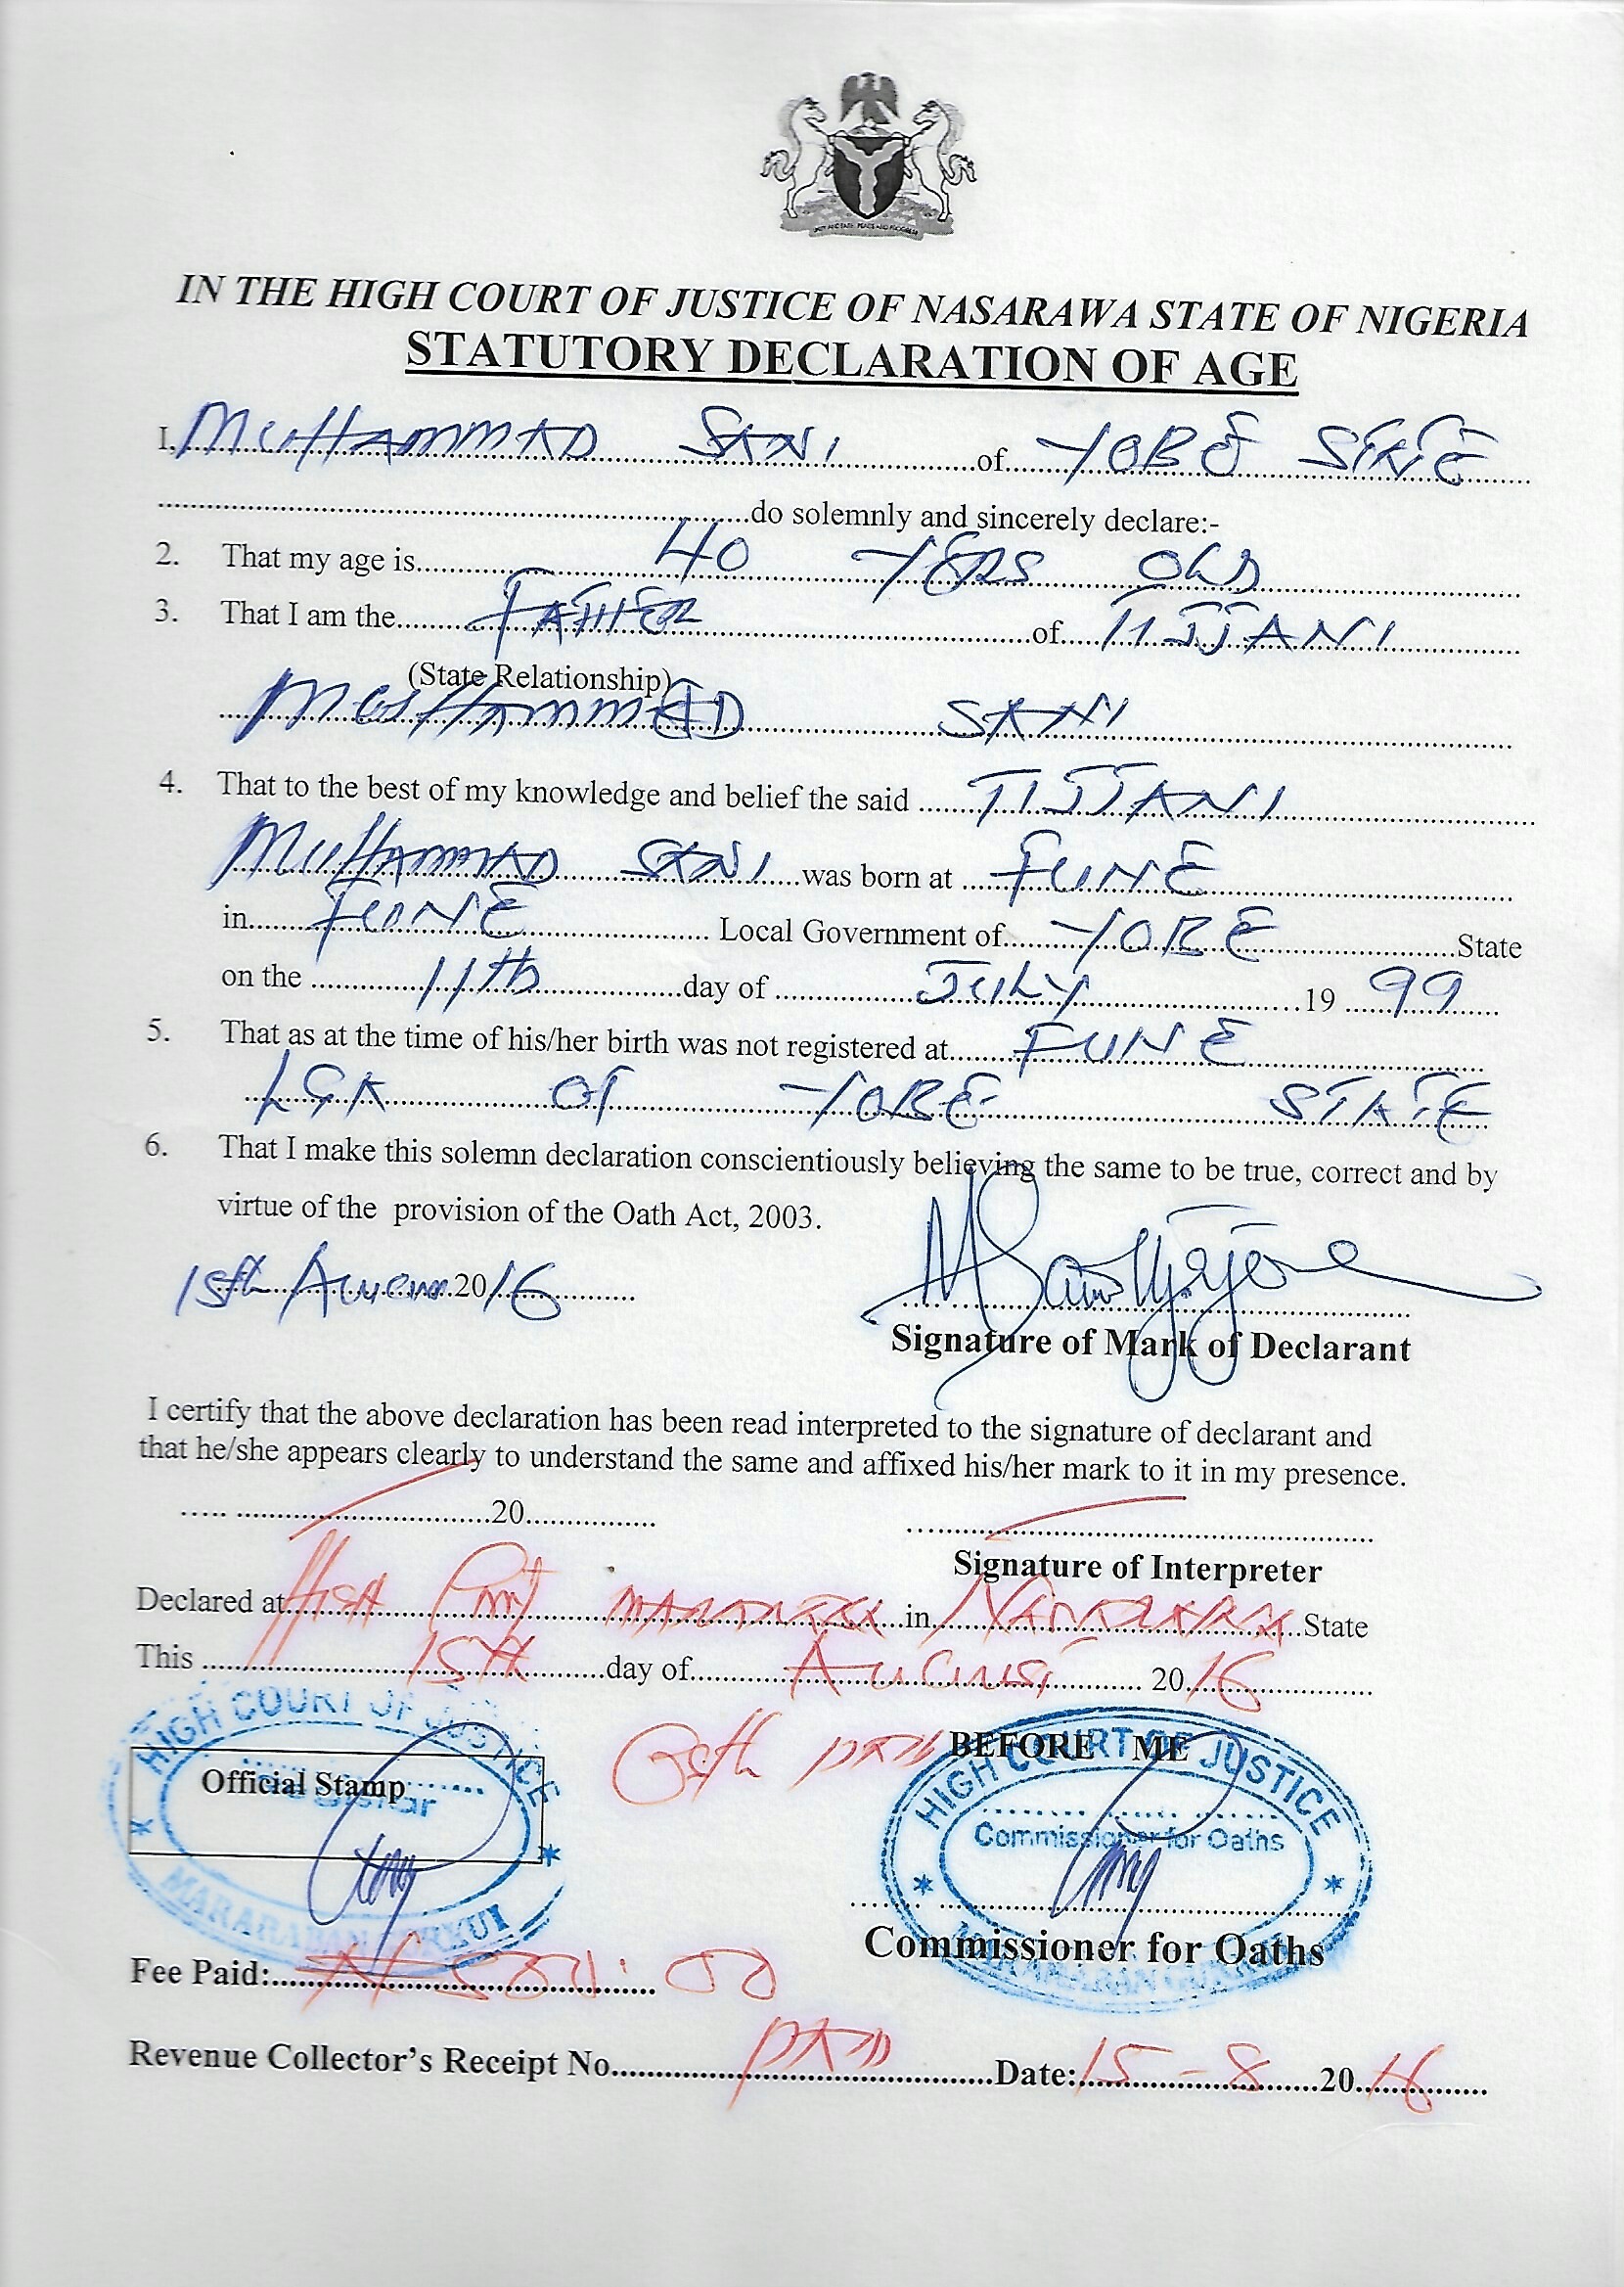 IN THE HIGH COURT OF JUSTICE OF NASARAWA STATE OF NIGERIA
STATUTORY DECLARATION OF AGE
I, MUHAMMAD SANI of YOBE STATE
do solemnly and sincerely declare:-
2. That my age is 40 YERS OLD
3. That I am the FATHER of TIJJANI
(State Relationship)
MUHAMMAD SANI
4. That to the best of my knowledge and belief the said TIJJANI
MUHAMMAD SANI was born at FUNE
in FUNE Local Government of YOBE State
on the 11th day of JULY 19 99
5. That as at the time of his/her birth was not registered at FUNE
LGA OF YOBE STATE
6. That I make this solemn declaration conscientiously believing the same to be true, correct and by
virtue of the provision of the Oath Act, 2003.
15th 2016
Signature of Mark of Declarant
I certify that the above declaration has been read interpreted to the signature of declarant and
that he/she appears clearly to understand the same and affixed his/her mark to it in my presence.
20
Signature of Interpreter
Declared at High Court in State
This 15th day of AUGUST 2016
HIGH COURT OF JUSTICE
Official Stamp
Registrar
MARARABAN GURKU
BEFORE ME
HIGH COURT OF JUSTICE
Commissioner for Oaths
MARARABAN GURKU
Commissioner for Oaths
Fee Paid:
Revenue Collector's Receipt No. PAID Date: 15-8 2016